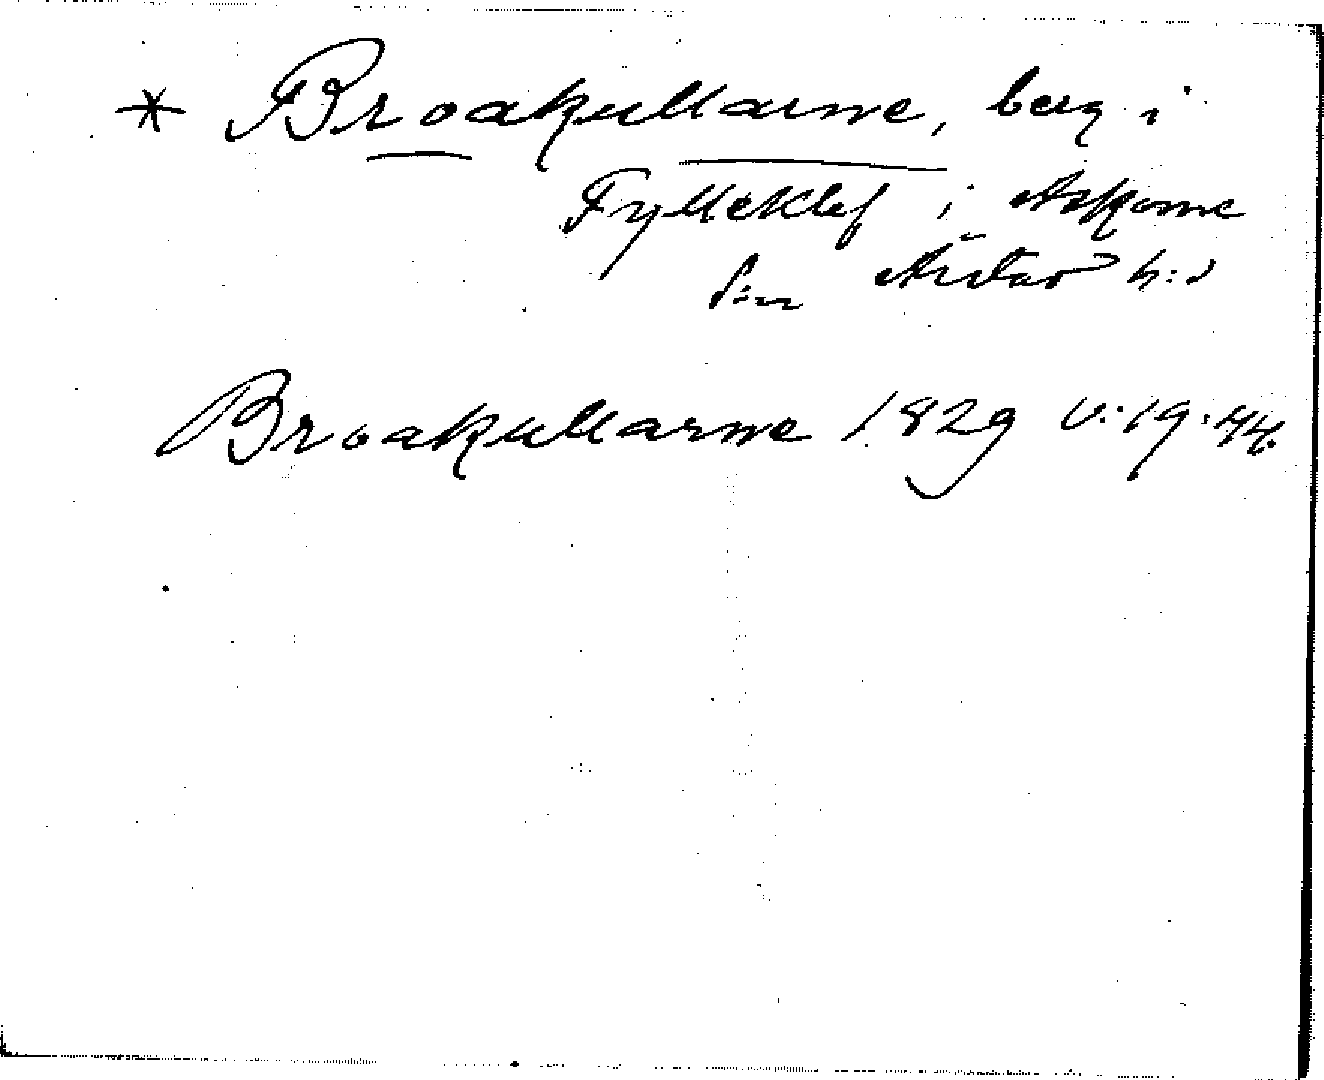 * Broakullarne, berg i
Fylleklef i Askome
s:n Årstad h:d
Broakullarne 1829 V:19:44.